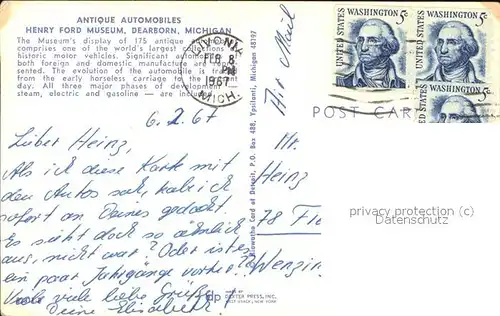 ANTIQUE AUTOMOBILES
HENRY FORD MUSEUM, DEARBORN, MICHIGAN
The Museum's display of 175 antique
comprises one of the world's largest collections
historic motor vehicles. Significant
both foreign and domestic manufacture are
sented. The evolution of the automobile is
from the early horseless carriage to the
day. All three major phases of development -
steam, electric and gasoline - are
FEB 8
PM
1967
MICH.
6.2.67
Lieber Heinz,
Als ich diese Karte mit
den Autos sah, hab ich
sofort an Deines gedacht.
Es sieht doch so ähnlich
aus, nicht wahr? Oder ist es
ein paar Jahrgänge vorher?
Viele viele liebe Grüße
Deine Elisabeth
DEXTER PRESS, INC.
WEST NYACK, NEW YORK
Card of Detroit, P.O. Box 488, Ypsilanti, Michigan 48197
Air Mail
UNITED STATES
WASHINGTON 5c
UNITED STATES
WASHINGTON 5c
UNITED STATES
WASHINGTON 5c
POST CARD
Hr.
Heinz
78
privacy protection (c)
Datenschutz